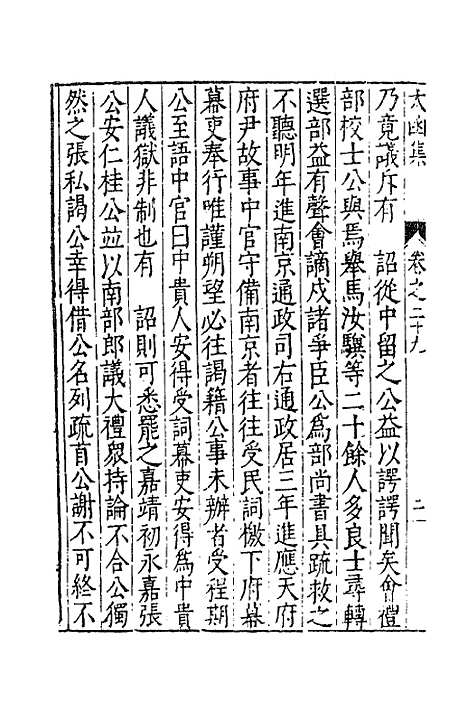 太函集 卷之二十九 二
乃竟議斥有 詔從中留之公益以諤諤聞矣會禮
部校士公與焉舉馬汝驥等二十餘人多良士尋轉
選部益有聲會謫戍諸爭臣公為部尚書具疏救之
不聽明年進南京通政司右通政居三年進應天府
府尹故事中官守備南京者往往受民詞檄下府幕
幕吏奉行唯謹朔望必往謁籍公事未辦者受程期
公至語中官曰中貴人安得受詞幕吏安得為中貴
人議獄非制也有 詔則可悉罷之嘉靖初永嘉張
公安仁桂公並以南部郎議大禮眾持論不合公獨
然之張私謁公幸得借公名列疏首公謝不可終不